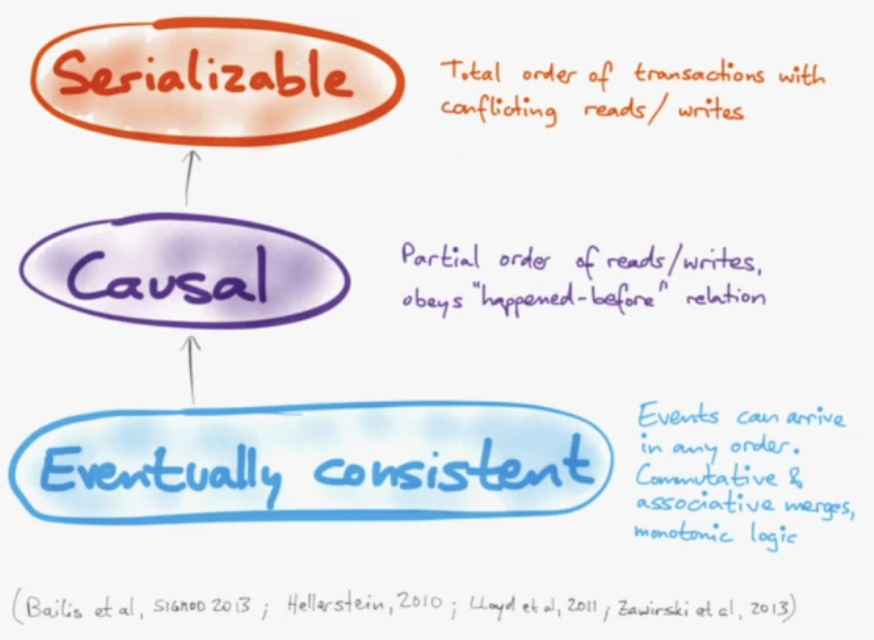 Serializable
Total order of transactions with
conflicting reads/writes
Causal
Partial order of reads/writes,
obeys "happened-before" relation
Eventually consistent
Events can arrive
in any order.
Commutative &
associative merges,
monotonic logic
(Bailis et al, SIGMOD 2013 ; Hellerstein, 2010 ; Lloyd et al, 2011 ; Zawirski et al, 2013)